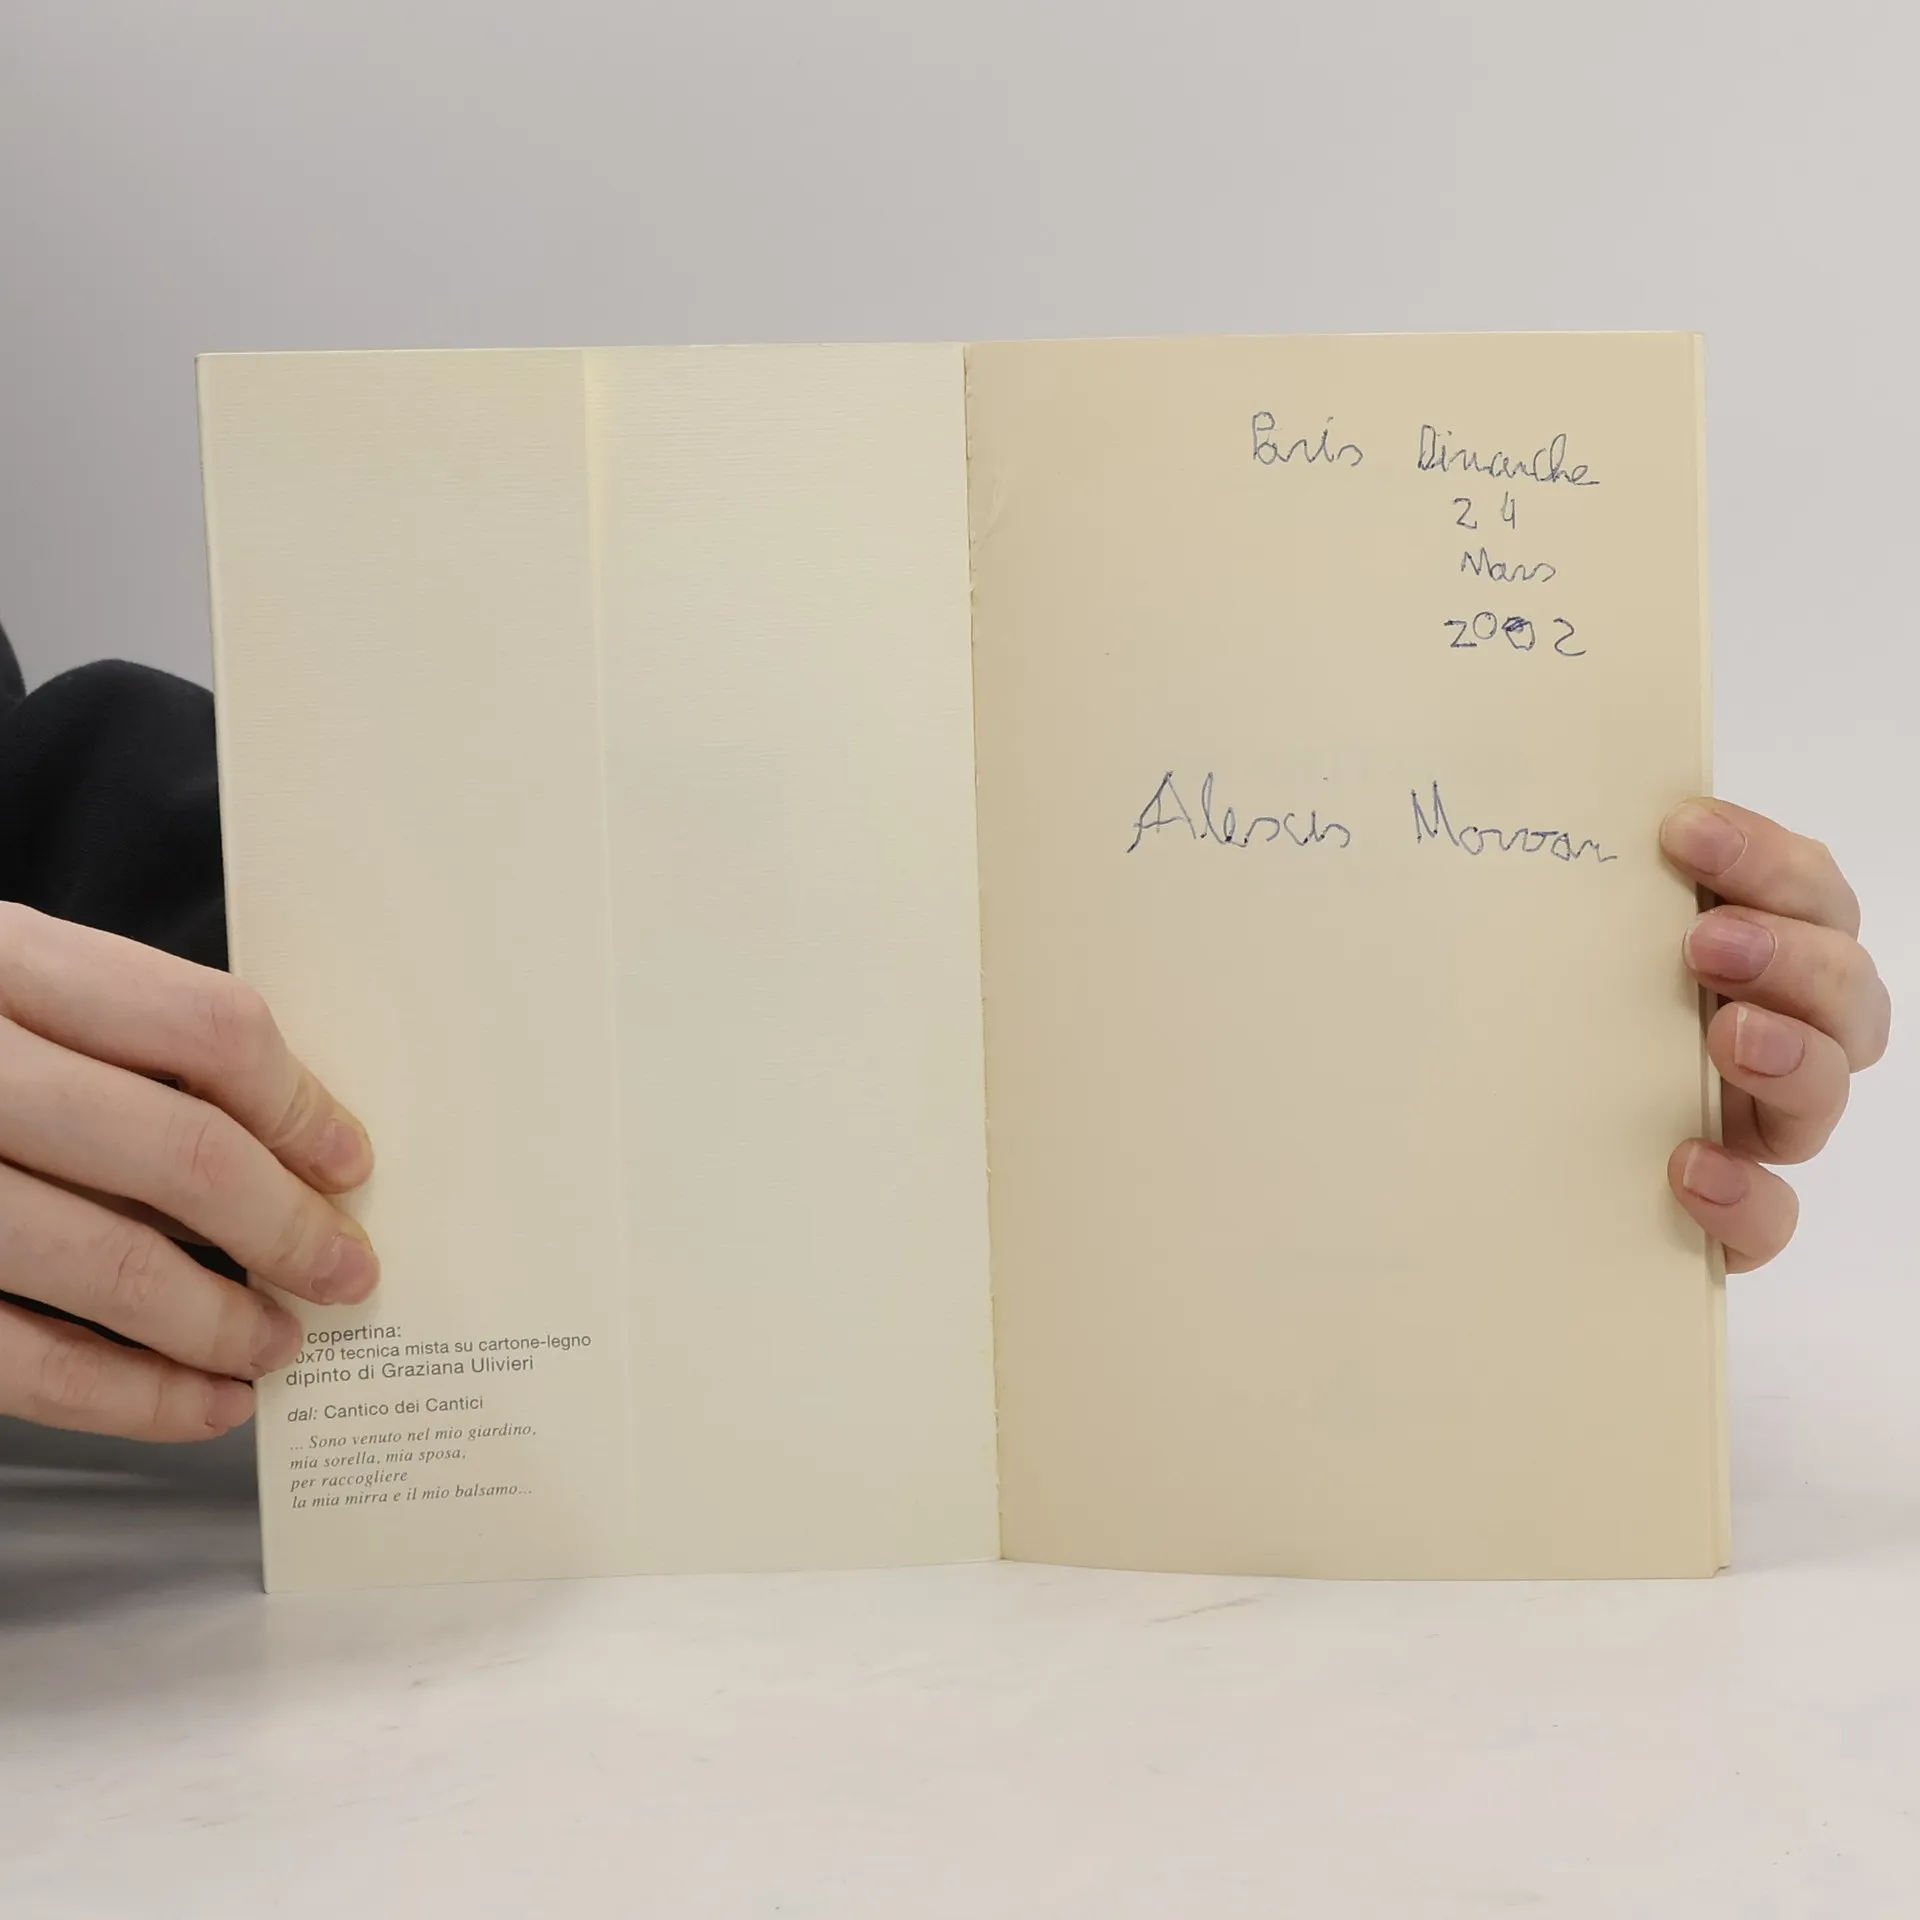 copertina:
0x70 tecnica mista su cartone-legno
dipinto di Graziana Ulivieri
dal: Cantico dei Cantici
... Sono venuto nel mio giardino,
mia sorella, mia sposa,
per raccogliere
la mia mirra e il mio balsamo...
Paris Dimanche
24
Mars
2002
Alexis Morvan